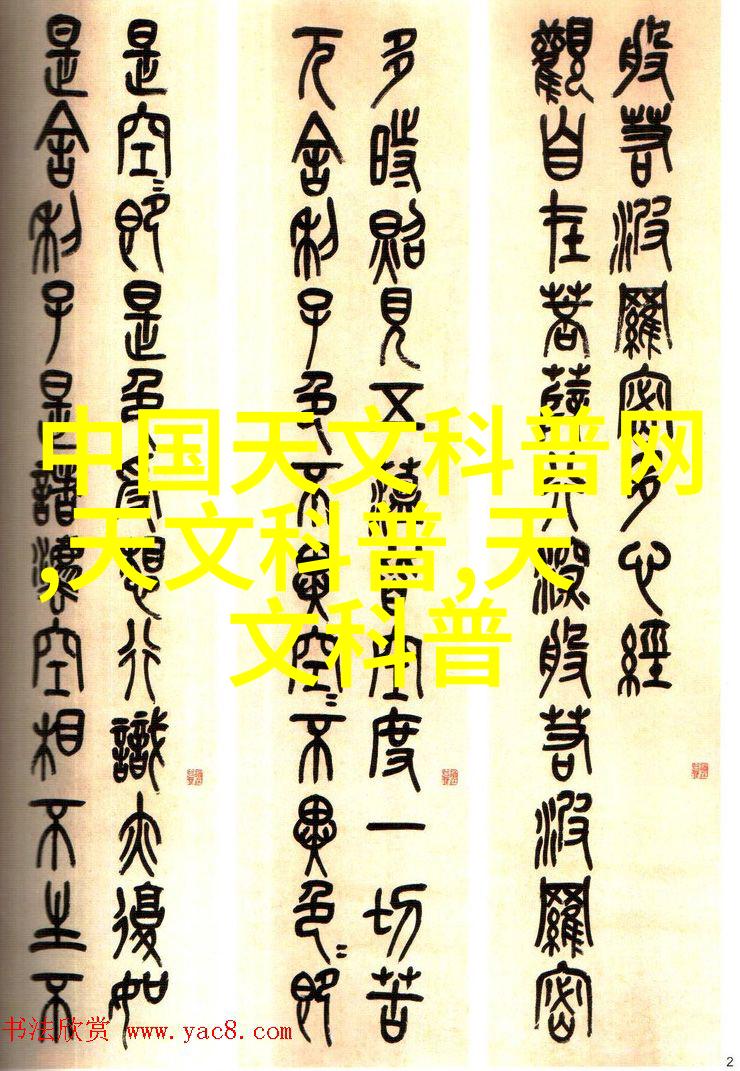 般若波羅密多心經
觀自在菩薩行深般若波羅密
多時照見五蘊皆空度一切苦
厄舍利子色不異空〻不異色〻即
是空〻即是色受想行識亦復如
是舍利子是諸灋空相不生不
中国天文科普网
,天文科普,天
文科普
书法欣赏 www.yac8.com
2